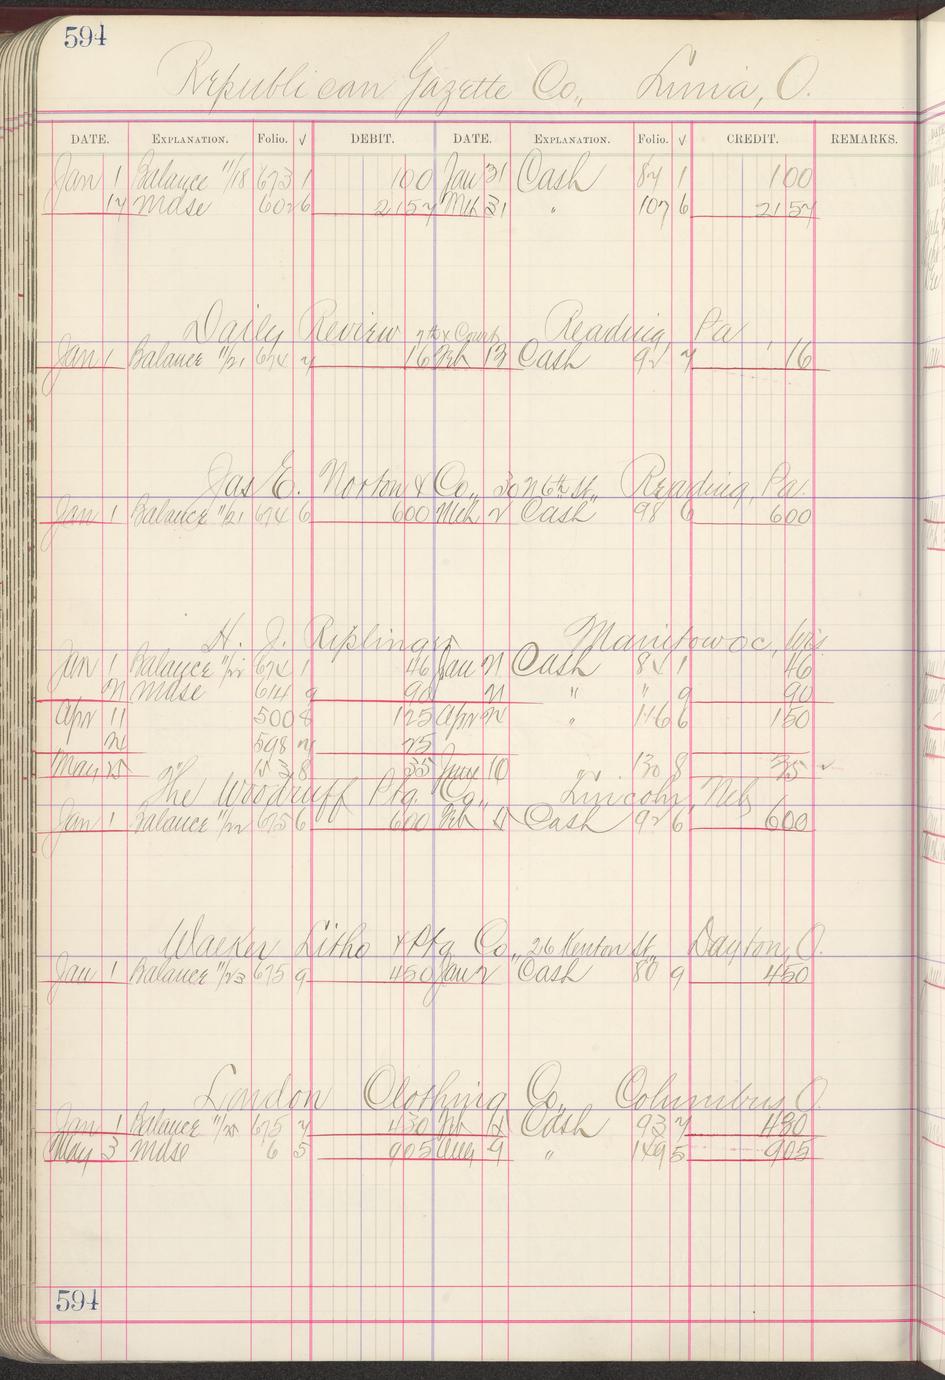 594
Republican Gazette Co., Limia, O.
DATE. EXPLANATION. Folio. √ DEBIT. DATE. EXPLANATION. Folio. √ CREDIT. REMARKS.
Jan 1 Balance 11/18 673 1 100 Jan 31 Cash 84 1 100
17 Mdse 602 6 2157 Mch 31 " 107 6 2157
Daily Review 7th & Court Reading, Pa
Jan 1 Balance 11/21 674 7 16 Feb 13 Cash 92 7 16
Jas E. Norton & Co., 30 N 6th St., Reading, Pa.
Jan 1 Balance 11/21 674 6 600 Mch 2 Cash 98 6 600
H. J. Riplinger Manitowoc, Wis.
Jan 1 Balance 11/22 674 1 46 Jan 21 Cash 84 1 46
21 Mdse 614 9 90 21 " " 9 90
Apr 11 500 8 125 Apr 24 " 116 6 150
24 598 25
May 25 153 8 35 June 10 " 130 8 35 ✓
The Woodruff Ptg. Co., Lincoln, Neb
Jan 1 Balance 11/22 675 6 600 Feb 11 Cash 92 6 600
Walker Litho & Ptg Co., 26 Kenton St., Dayton, O.
Jan 1 Balance 11/23 675 9 450 Jan 2 Cash 80 9 450
London Clothing Co., Columbus, O.
Jan 1 Balance 11/25 675 7 430 Feb 15 Cash 93 7 430
May 3 Mdse 6 5 905 Aug 9 " 149 5 905
594